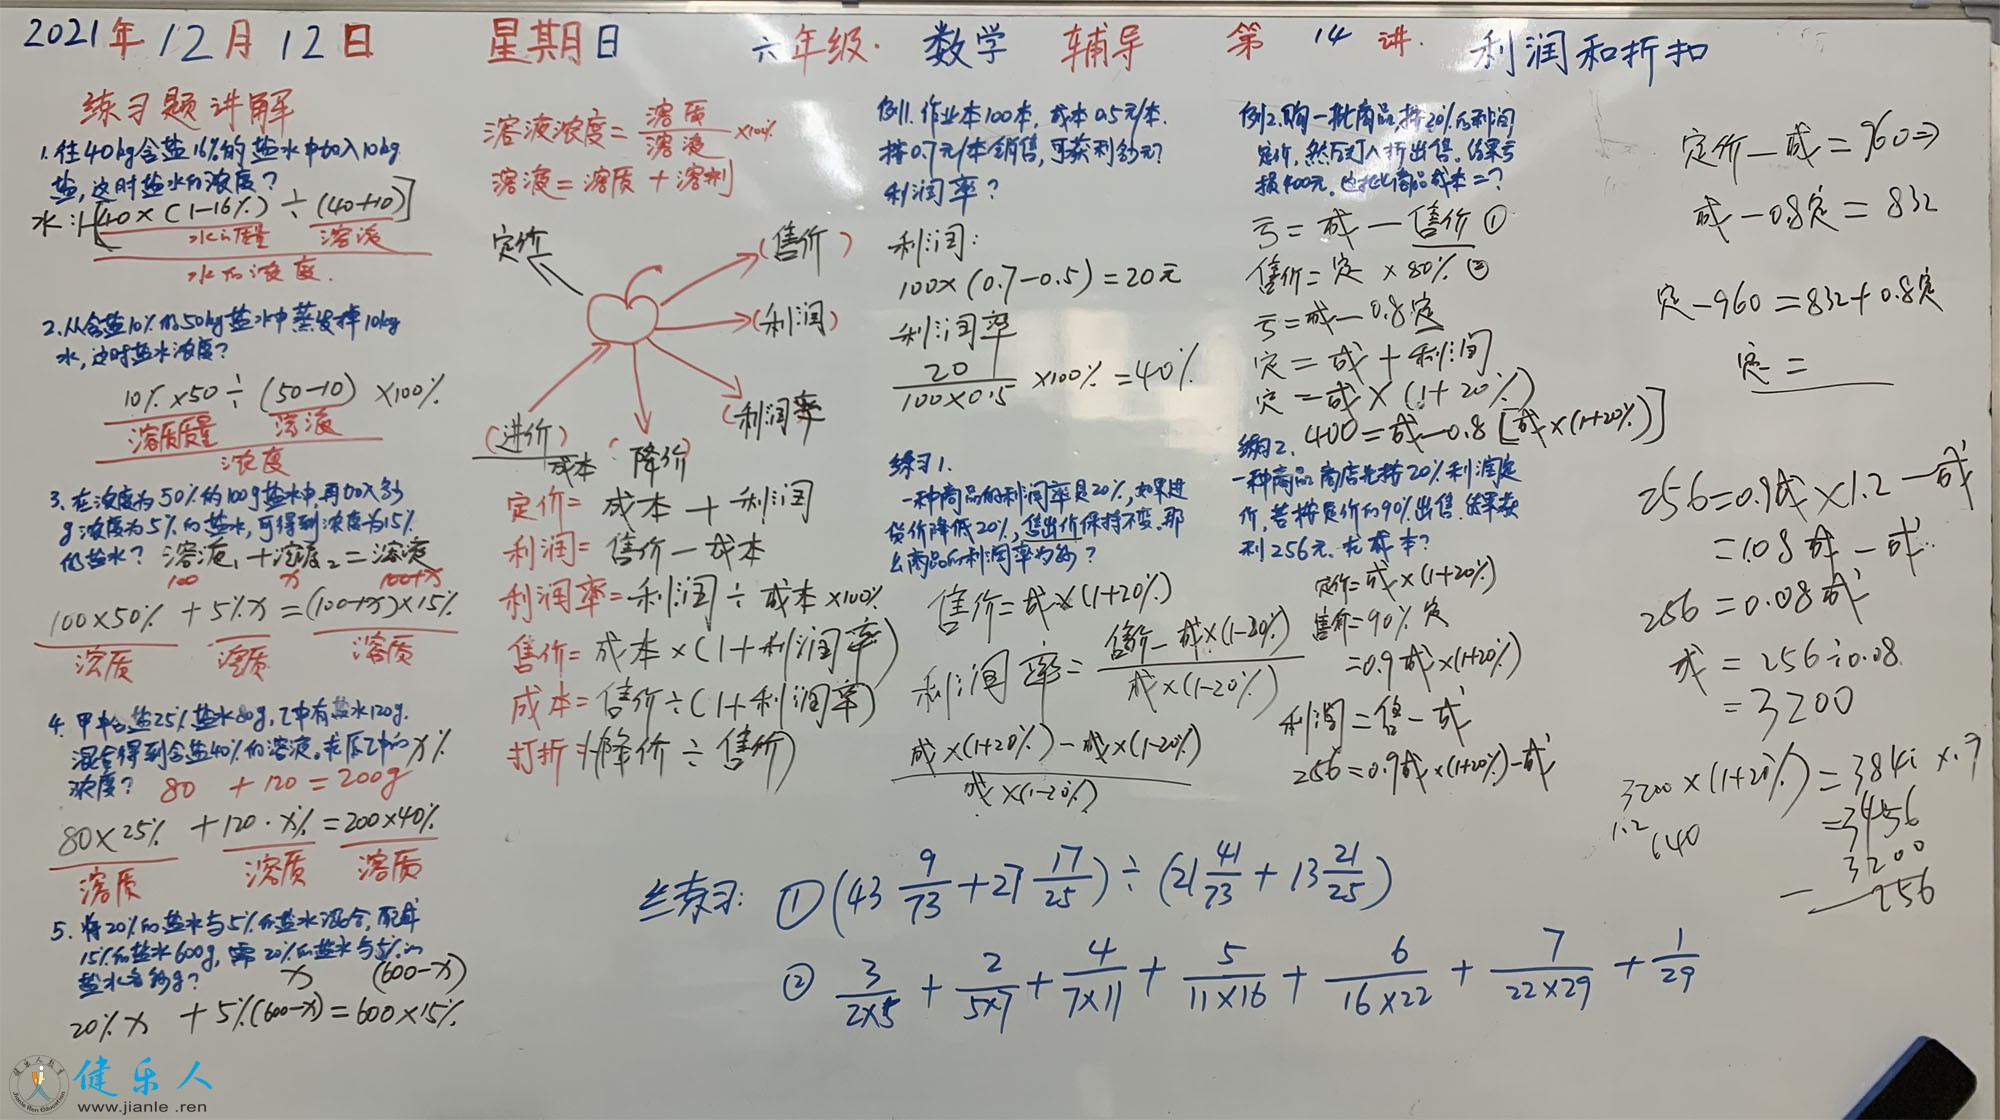 2021年12月12日 星期日 六年级. 数学 辅导 第 14 讲. 利润和折扣
练习题讲解
1. 往40kg含盐16%的盐水中加入10kg
盐,这时盐水的浓度?
水:1-[40×(1-16%)÷(40+10)]
水的质量 溶液
水的浓度.
2.从含盐10%的50kg盐水中蒸发掉10kg
水,这时盐水浓度?
10%×50÷(50-10)×100%
溶质质量 溶液
浓度
3. 在浓度为50%的100g盐水中,再加入多少
g浓度为5%的盐水,可得到浓度为15%
的盐水? 溶液1+溶液2=溶液
100 x 100+x
100×50% + 5%x = (100+x)×15%
溶质 溶质 溶质
4. 甲中含盐25%盐水80g,乙中有盐水120g.
混合得到含盐40%的溶液.求原乙中的 x%
浓度? 80 + 120 = 200g
80×25% + 120·x% = 200×40%
溶质 溶质 溶质
5. 将20%的盐水与5%的盐水混合,配成
15%的盐水600g,需20%的盐水与5%的
盐水各多少g? x (600-x)
20%x + 5%(600-x) = 600×15%
溶液浓度= 溶质/溶液 ×100%
溶液=溶质+溶剂
定价
(售价)
(利润)
(利润率
(降价)
(进价)
成本
定价= 成本+利润
利润= 售价-成本
利润率=利润÷成本×100%
售价= 成本×(1+利润率)
成本=售价÷(1+利润率)
打折:(降价÷售价)
例1. 作业本100本,成本0.5元/本.
按0.7元/本销售,可获利多少元?
利润率?
利润:
100×(0.7-0.5)=20元
利润率
20/100×0.5 ×100% =40%
练习1.
一种商品的利润率是20%,如果进
货价降低20%,售出价保持不变.那
么商品的利润率为多少?
售价=成×(1+20%)
利润率= 售价-成×(1-20%)/成×(1-20%)
成×(1+20%)-成×(1-20%)/成×(1-20%)
例2.购一批商品,按20%的利润
定价,然后打八折出售.结果亏
损400元.这批商品成本=?
亏=成-售价①
售价=定×80%②
亏=成-0.8定
定=成+利润
定=成×(1+20%)
400=成-0.8[成×(1+20%)]
练习2.
一种商品商店先按20%利润定
价,若按定价的90%出售.结果获
利256元.求成本?
定价=成×(1+20%)
售价=90%定
=0.9成×(1+20%)
利润=售-成
256=0.9成×(1+20%)-成
定价-成=960⇒
成-0.8定=832
定-960=832+0.8定
定=
256=0.9成×1.2-成
=1.08成-成
256=0.08成
成=256÷0.08
=3200
3200×(1+20%)=384 ×.9
1.2
640
=3456
3200
-
256
练习: ①(43 9/73+27 17/25)÷(21 41/73+13 21/25)
② 3/2×5 + 2/5×7 + 4/7×11 + 5/11×16 + 6/16×22 + 7/22×29 + 1/29
健乐人教育
Jianle Ren Education
健乐人
www.jianle .ren